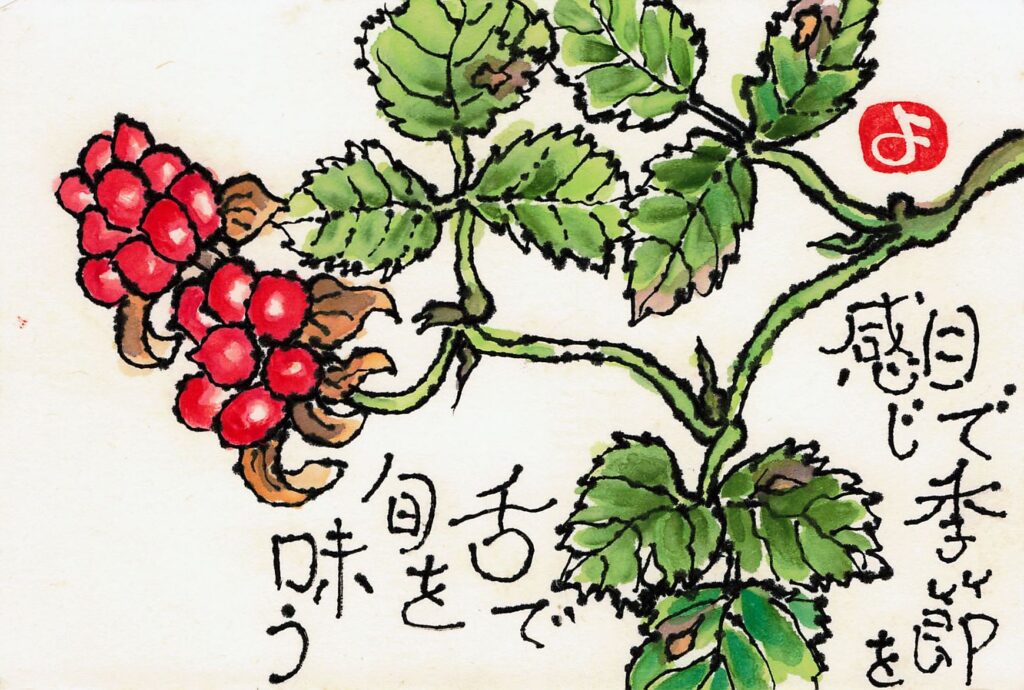 目で季節を
感じ
舌で
旬を
味う
よ